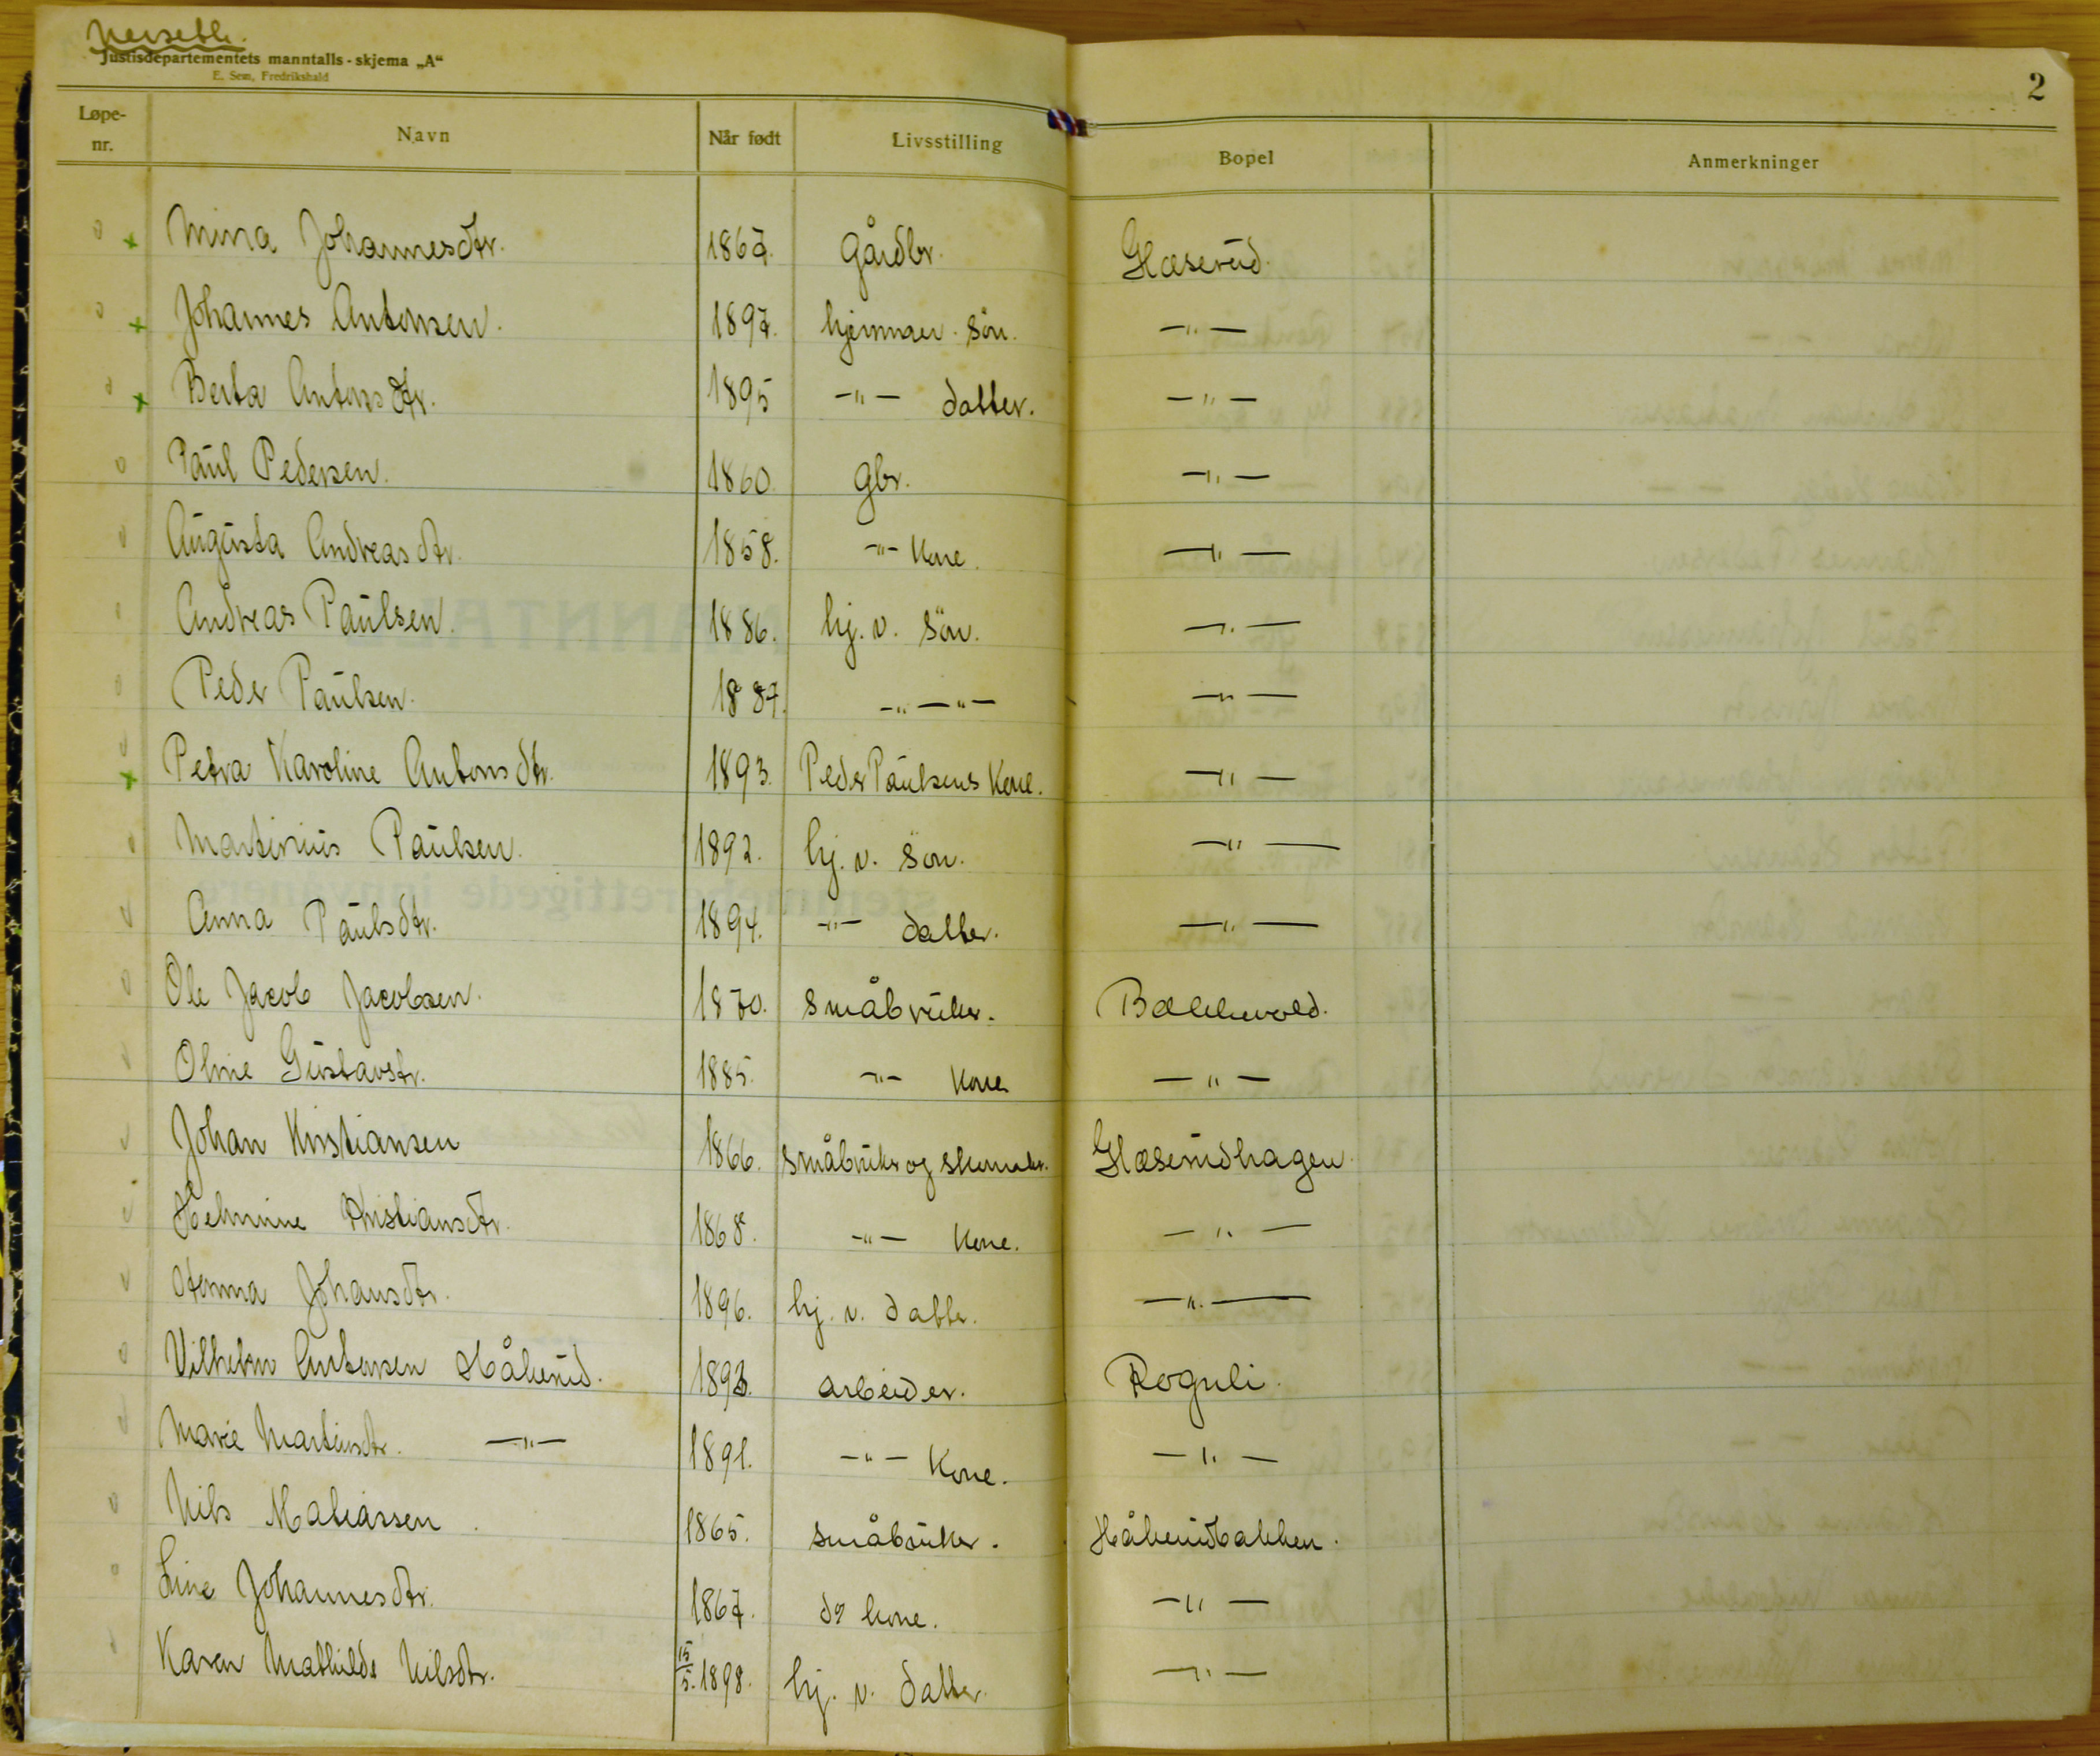 Nerseth.
Justisdepartementets manntalls-skjema „A“
E. Sem, Fredrikshald
2
Løpe-nr. Navn Når født Livsstilling Bopel Anmerkninger
Mina Johannesdtr. 1867. Gårdbr. Glæserud.
Johannes Antonsen. 1897. hjemmev. sön. —„—
Berta Antonsdtr. 1895 —„— datter. —„—
Paul Pedersen. 1860. Gbr. —„—
Augusta Andreasdtr. 1858. —„— Kone. —„—
Andreas Paulsen. 1886. hj. v. sön. —„—
Peder Paulsen. 1887. —„—„— —„—
Petra Karoline Antonsdtr. 1893. Peder Paulsens Kone. —„—
Martinius Paulsen. 1892. hj. v. sön. —„—
Anna Paulsdtr. 1894. —„— datter. —„—
Ole Jacob Jacobsen. 1870. småbruker. Bækkevold.
Oline Gustavstr. 1885. —„— Kone —„—
Johan Kristiansen 1866. småbruker og skomaker. Glæserudhagen.
Helmine Kristiansdtr. 1868. —„— Kone. —„—
Hanna Johansdtr. 1896. hj. v. datter. —„—
Vilhelm Antonsen Håkerud. 1893. arbeider. Rognli.
Marie Martinsdtr. —„— 1891. —„— Kone. —„—
Nils Matiassen. 1865. småbruker. Håkerudbakken.
Line Johannesdtr. 1867. do kone. —„—
Karen Mathilde Nilsdtr. 15/5. 1898. hj. v. datter. —„—